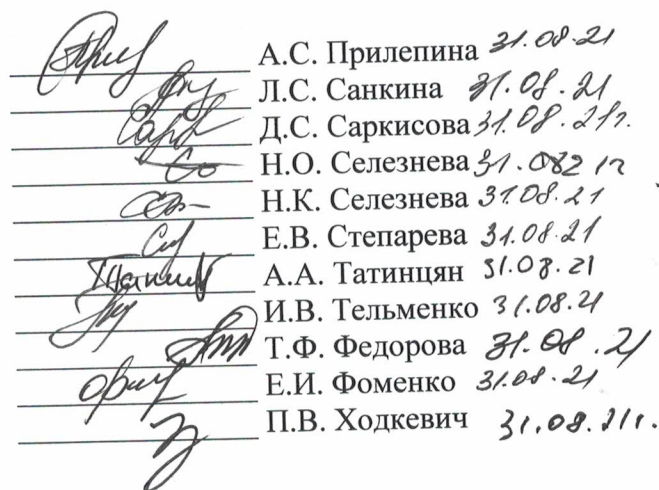 А.С. Прилепина 31.08.21
Л.С. Санкина 31.08.21
Д.С. Саркисова 31.08.21г.
Н.О. Селезнева
Н.К. Селезнева 31.08.21
Е.В. Степарева 31.08.21
А.А. Татинцян 31.08.21
И.В. Тельменко 31.08.21
Т.Ф. Федорова 31.08.21
Е.И. Фоменко 31.08.21
П.В. Ходкевич 31.08.21г.